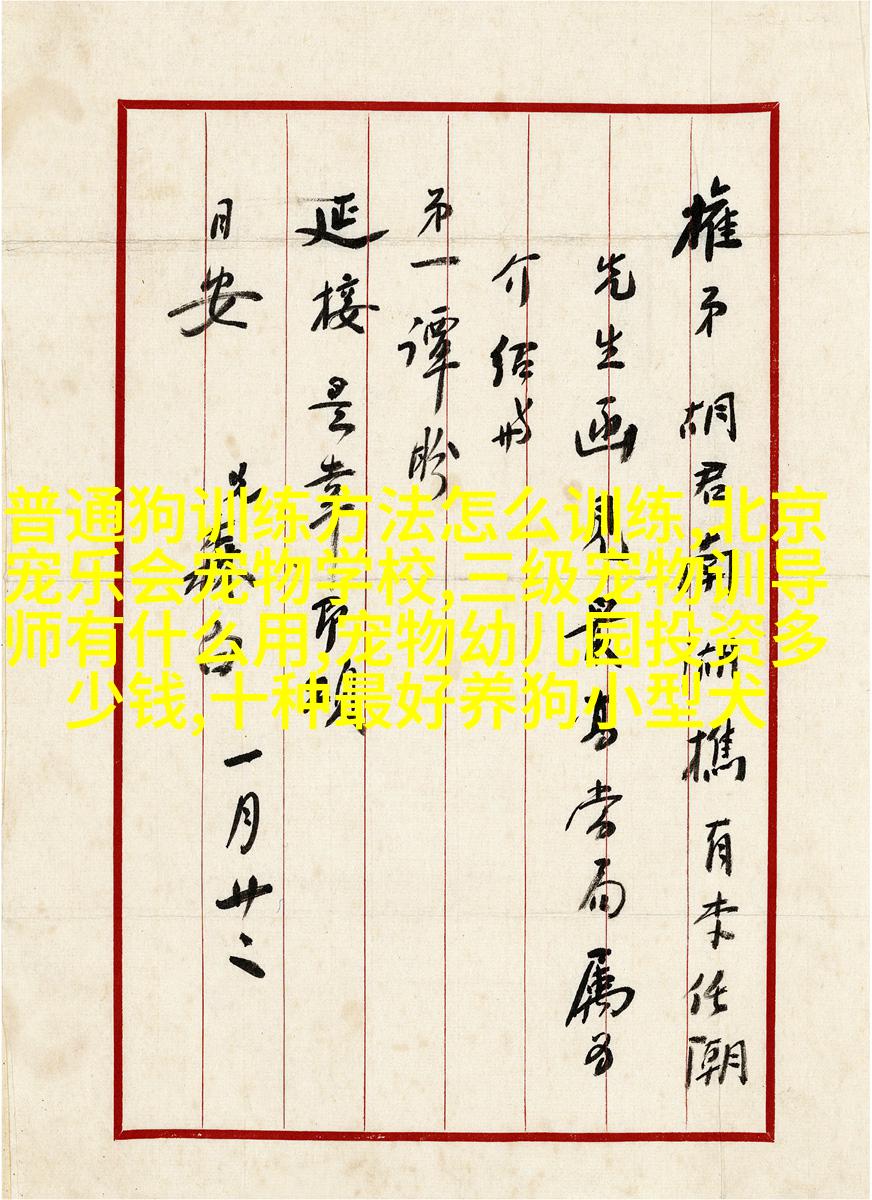 權弟胡君蘭樵有李任潮
先生函見當局属為
介紹
弟一譚盼
延接是幸
日安
一月廿二
普通狗训练方法怎么训练,北京
宠乐会宠物学校,三级宠物训导
师有什么用,宠物幼儿园投资多
少钱,十种最好养狗小型犬